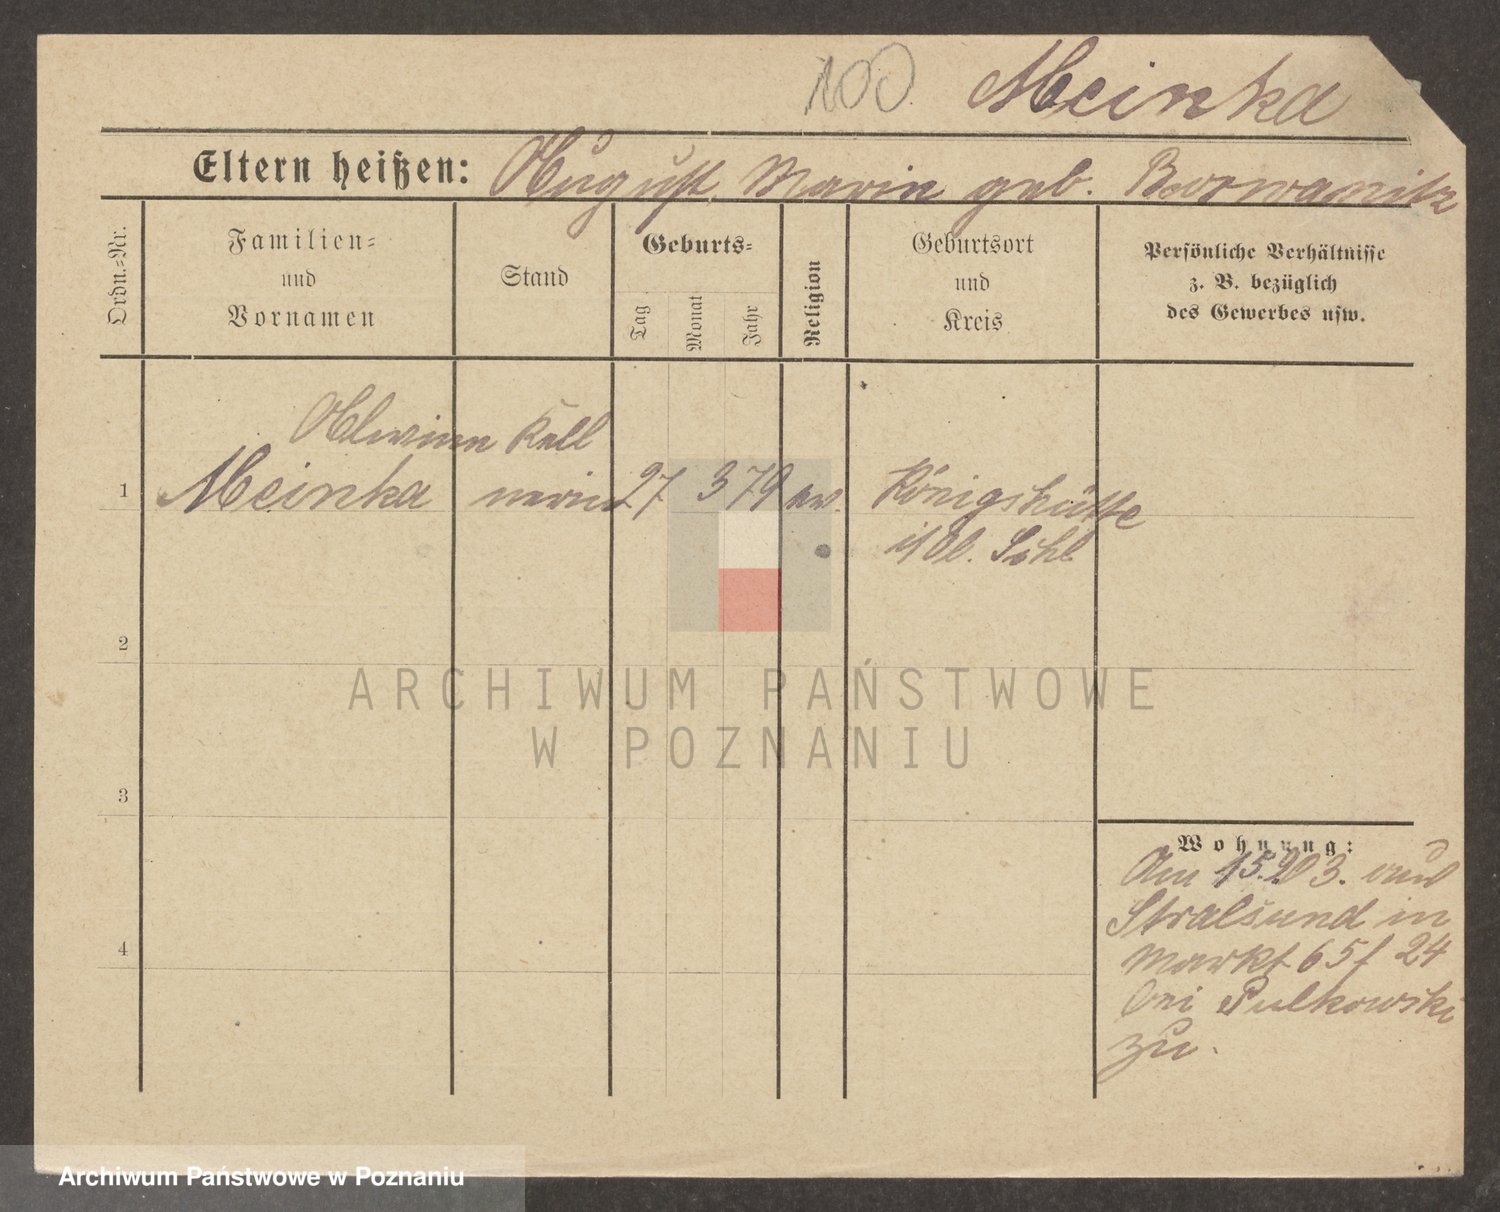 100 Meinka
Eltern heißen: August, Marie geb. Borwanitz
Ordn.-Nr.
Familien-
und
Vornamen
Stand
Geburts-
Tag
Monat
Jahr
Religion
Geburtsort
und
Kreis
Persönliche Verhältnisse
z. B. bezüglich
des Gewerbes usw.
Kell
1 Meinka nerin 27 3 79 Königshütte
i/Ob. Schl.
2
ARCHIWUM PAŃSTWOWE
W POZNANIU
3
Wohnung:
Am 15.9.03. aus
Stralsund in
Markt 65/ 24
bei Pulkowski
zu.
4
Archiwum Państwowe w Poznaniu